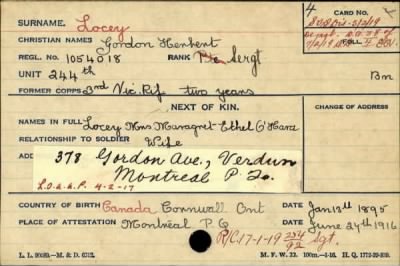 SURNAME. Locey
CARD No.
4
CHRISTIAN NAMES Gordon Herbert
S.O.S. Dis. 5/2/19
REGL. No. 1054018 RANK Pte Sergt
FOLL.
UNIT 244th Bn
FORMER CORPS 3rd Vic. Rif. two years
NEXT OF KIN.
CHANGE OF ADDRESS
NAMES IN FULL Locey Mrs Margaret Ethel O'Hara
RELATIONSHIP TO SOLDIER Wife
ADD 378 Gordon Ave., Verdun
Montreal P. Q.
L.O.a.a.P. 4-2-17
COUNTRY OF BIRTH Canada Cornwall Ont DATE Jan 13th 1895
PLACE OF ATTESTATION Montréal P.Q DATE June 24th 1916
R/C 17-1-19 Sgt.
M. F. W. 22. 100m.-1-16. H. Q. 1772-39-339.